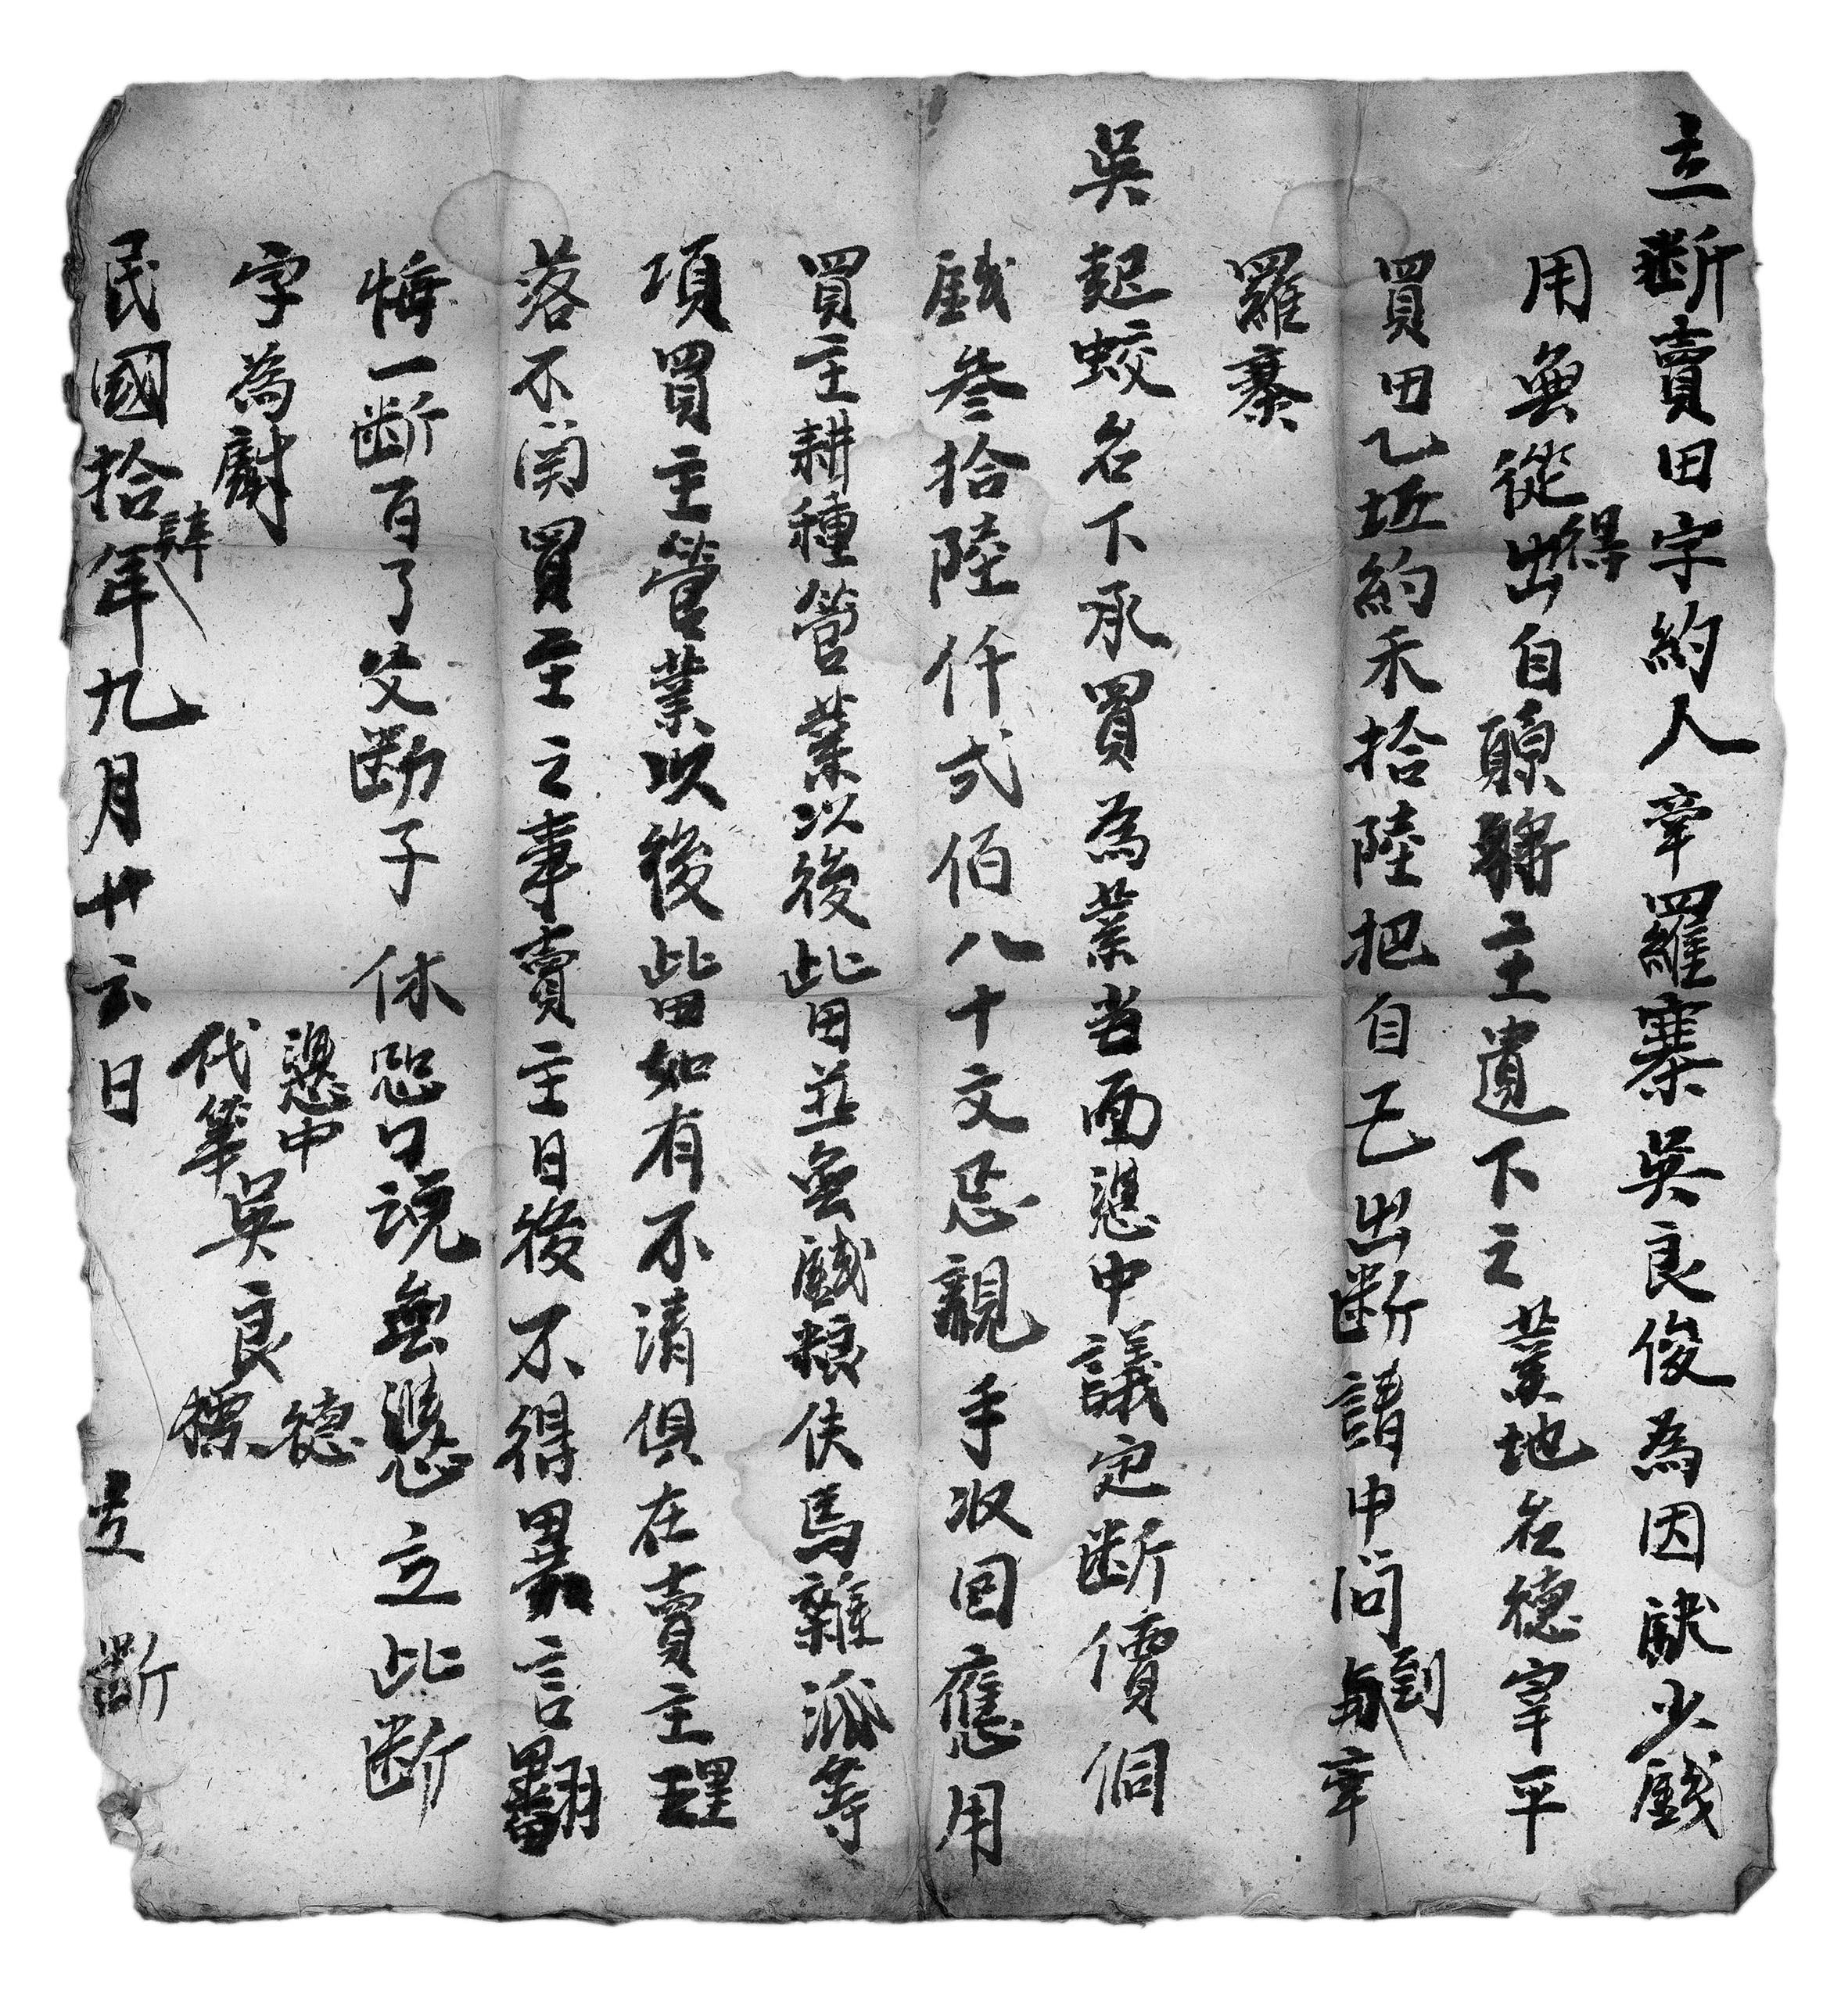 立断賣田字約人章羅寨吳良俊為因缺少錢
用無從得出自願將主遺下之業地名德宰平
買田乙坵約禾拾陸把自己出断請中问到章
羅寨
吳起蛟名下承買為業当面憑中議定断價侗
錢叁拾陸仟弍佰八十文忌親手收回應用
買主耕種管業以後此田並無錢粮伕馬雜派等
項買主管業以後此田如有不清俱在賣主理
落不関買主之事賣主日後不得異言翻
悔一断百了父断子休恐口説無憑立此断
字為
憑中 吳良德
代筆 吳良標
民國拾肆年九月廿六日 立断